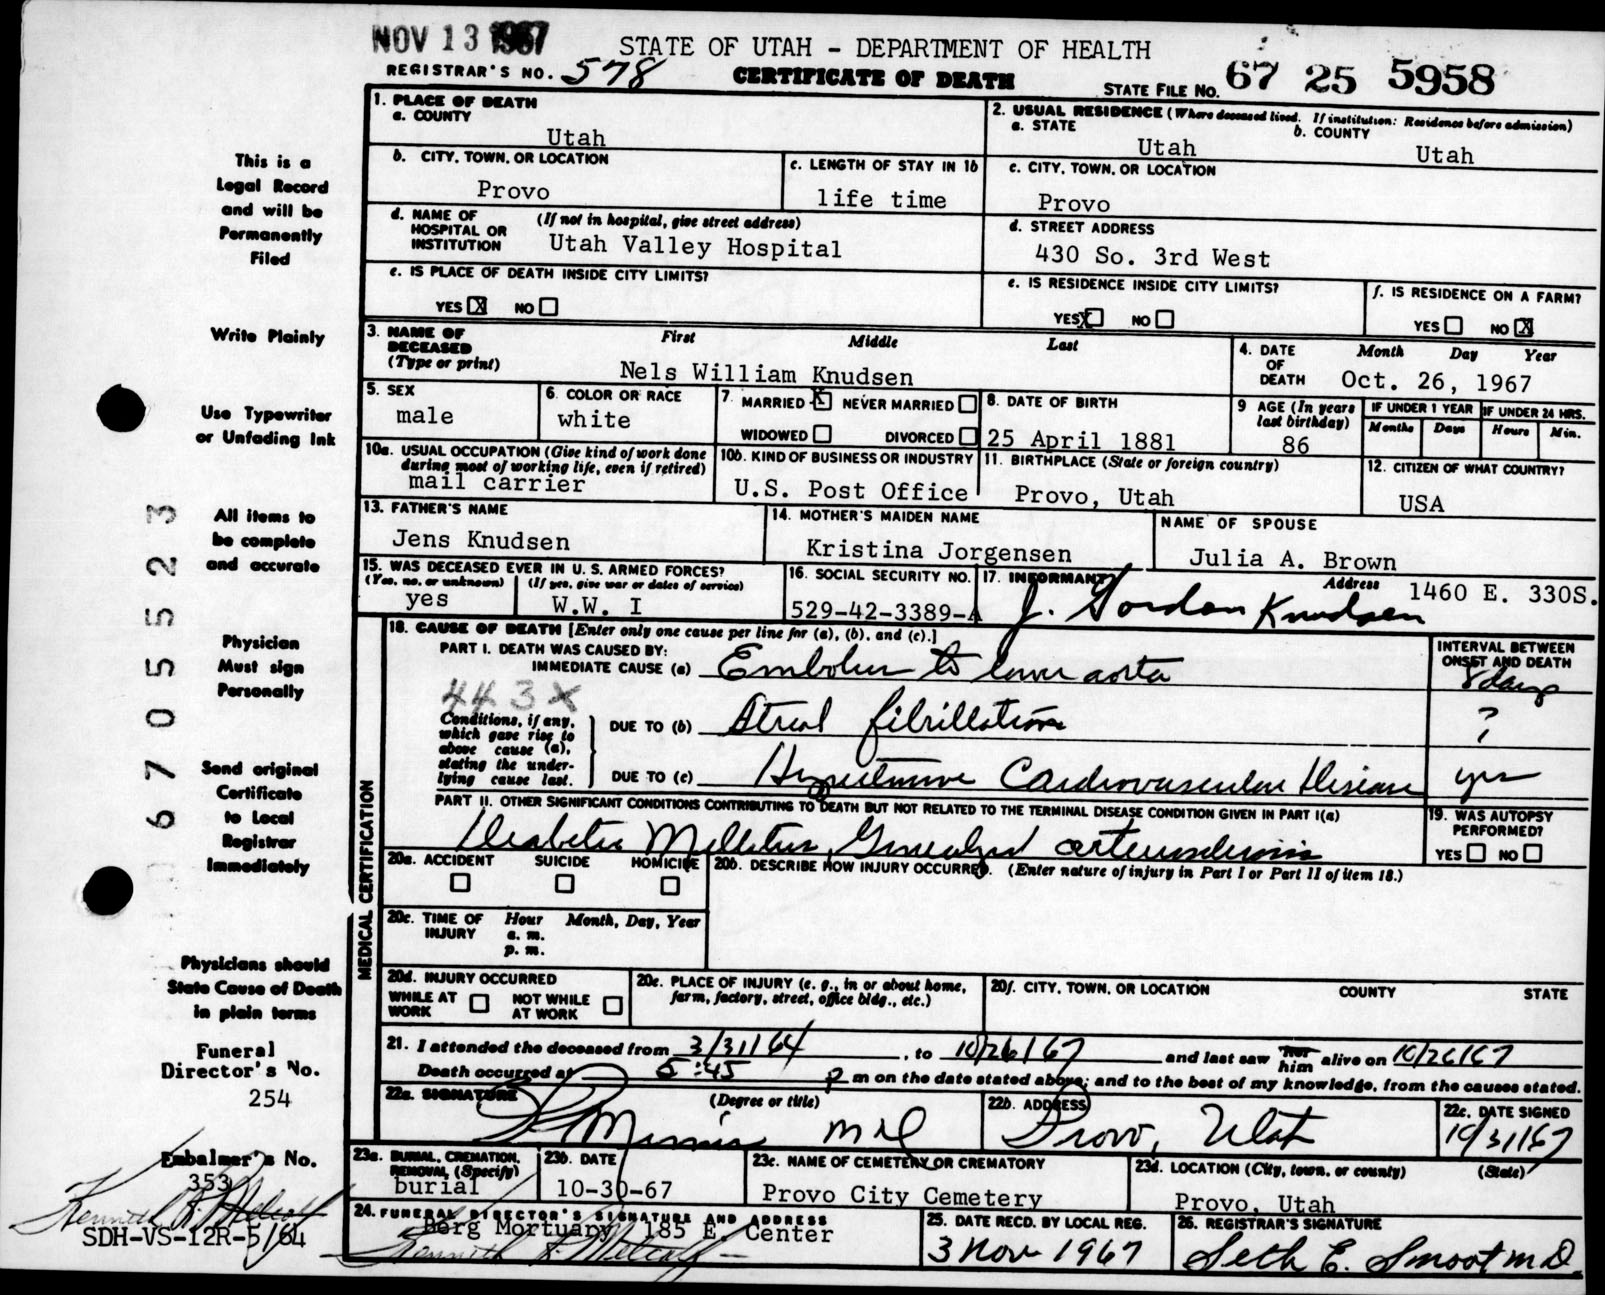 NOV 13 1967
STATE OF UTAH - DEPARTMENT OF HEALTH
REGISTRAR'S NO. 578
CERTIFICATE OF DEATH
STATE FILE NO. 67 25 5958
1. PLACE OF DEATH
a. COUNTY
Utah
2. USUAL RESIDENCE (Where deceased lived. If institution: Residence before admission)
a. STATE
Utah
b. COUNTY
Utah
b. CITY, TOWN, OR LOCATION
Provo
c. LENGTH OF STAY IN 1b
life time
c. CITY, TOWN, OR LOCATION
Provo
d. NAME OF HOSPITAL OR INSTITUTION
(If not in hospital, give street address)
Utah Valley Hospital
d. STREET ADDRESS
430 So. 3rd West
e. IS PLACE OF DEATH INSIDE CITY LIMITS?
YES X NO
e. IS RESIDENCE INSIDE CITY LIMITS?
YES X NO
f. IS RESIDENCE ON A FARM?
YES NO X
3. NAME OF DECEASED (Type or print)
First Middle Last
Nels William Knudsen
4. DATE OF DEATH
Month Day Year
Oct. 26, 1967
5. SEX
male
6. COLOR OR RACE
white
7. MARRIED X NEVER MARRIED
WIDOWED DIVORCED
8. DATE OF BIRTH
25 April 1881
9 AGE (In years last birthday)
86
IF UNDER 1 YEAR
Months Days
IF UNDER 24 HRS.
Hours Min.
10a. USUAL OCCUPATION (Give kind of work done during most of working life, even if retired)
mail carrier
10b. KIND OF BUSINESS OR INDUSTRY
U.S. Post Office
11. BIRTHPLACE (State or foreign country)
Provo, Utah
12. CITIZEN OF WHAT COUNTRY?
USA
13. FATHER'S NAME
Jens Knudsen
14. MOTHER'S MAIDEN NAME
Kristina Jorgensen
NAME OF SPOUSE
Julia A. Brown
15. WAS DECEASED EVER IN U. S. ARMED FORCES?
(Yes, no, or unknown)
yes
(If yes, give war or dates of service)
W.W. I
16. SOCIAL SECURITY NO.
529-42-3389-A
17. INFORMANT
J. Gordon Knudsen
Address
1460 E. 330S.
MEDICAL CERTIFICATION
18. CAUSE OF DEATH [Enter only one cause per line for (a), (b), and (c).]
PART I. DEATH WAS CAUSED BY:
IMMEDIATE CAUSE (a) Embolus to lower aorta
443X
INTERVAL BETWEEN ONSET AND DEATH
8 days
Conditions, if any, which gave rise to above cause (a), stating the underlying cause last.
DUE TO (b) Atrial fibrillation
?
DUE TO (c) Hypertensive Cardiovascular Disease
yrs
PART II. OTHER SIGNIFICANT CONDITIONS CONTRIBUTING TO DEATH BUT NOT RELATED TO THE TERMINAL DISEASE CONDITION GIVEN IN PART I(a)
Diabetes Mellitus, Generalized arteriosclerosis
19. WAS AUTOPSY PERFORMED?
YES NO
20a. ACCIDENT SUICIDE HOMICIDE
20b. DESCRIBE HOW INJURY OCCURRED. (Enter nature of injury in Part I or Part II of item 18.)
20c. TIME OF INJURY
Hour Month, Day, Year
a. m.
p. m.
20d. INJURY OCCURRED
WHILE AT WORK NOT WHILE AT WORK
20e. PLACE OF INJURY (e. g., in or about home, farm, factory, street, office bldg., etc.)
20f. CITY, TOWN, OR LOCATION COUNTY STATE
21. I attended the deceased from 3/31/64, to 10/26/67 and last saw her him alive on 10/26/67
Death occurred at 5:45 p m on the date stated above; and to the best of my knowledge, from the causes stated.
22a. SIGNATURE
(Degree or title)
MD
22b. ADDRESS
Provo, Utah
22c. DATE SIGNED
10/31/67
23a. BURIAL, CREMATION, REMOVAL, (Specify)
burial
23b. DATE
10-30-67
23c. NAME OF CEMETERY OR CREMATORY
Provo City Cemetery
23d. LOCATION (City, town, or county) (State)
Provo, Utah
24. FUNERAL DIRECTOR'S SIGNATURE AND ADDRESS
Berg Mortuary 185 E. Center
25. DATE RECD. BY LOCAL REG.
3 Nov 1967
26. REGISTRAR'S SIGNATURE
Seth E. Smoot M.D.
This is a
Legal Record
and will be
Permanently
Filed
Write Plainly
Use Typewriter
or Unfading Ink
All items to
be complete
and accurate
Physician
Must sign
Personally
Send original
Certificate
to Local
Registrar
Immediately
Physicians should
State Cause of Death
in plain terms
Funeral
Director's No.
254
Embalmer's No.
353
SDH-VS-12R-5/64
67055523